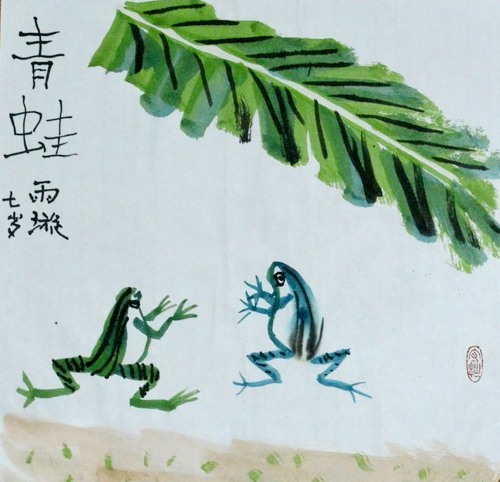 青蛙
雨璇
七岁